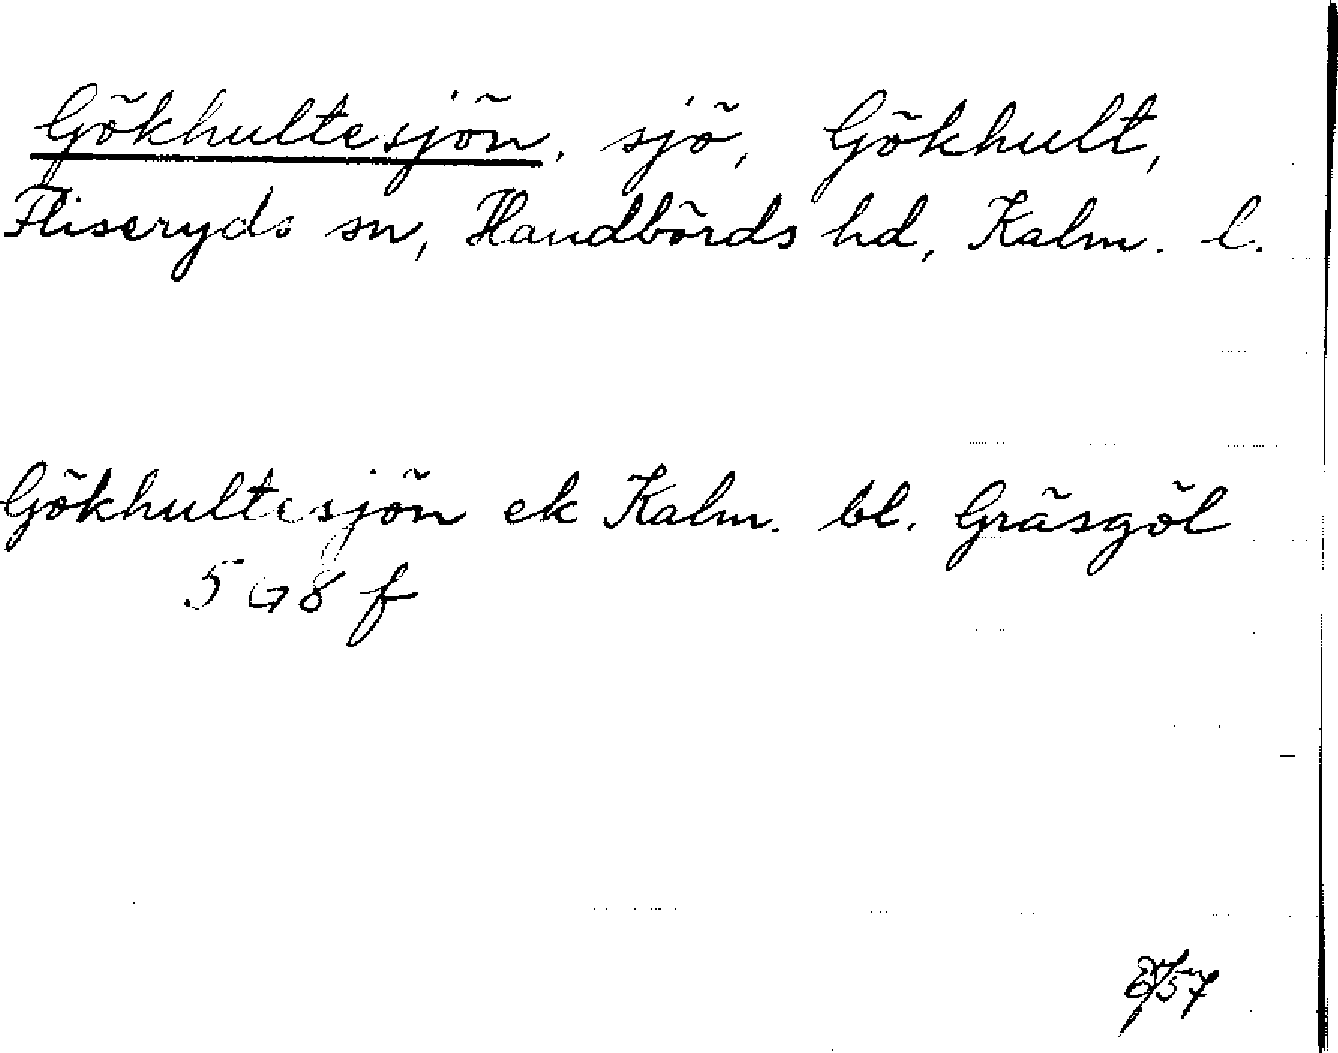 Gökhultesjön, sjö, Gökhult,
Fliseryds sn, Handbörds hd, Kalm. l.
Gökhultesjön ek Kalm. bl. Gräsgöl
5 G 8 f